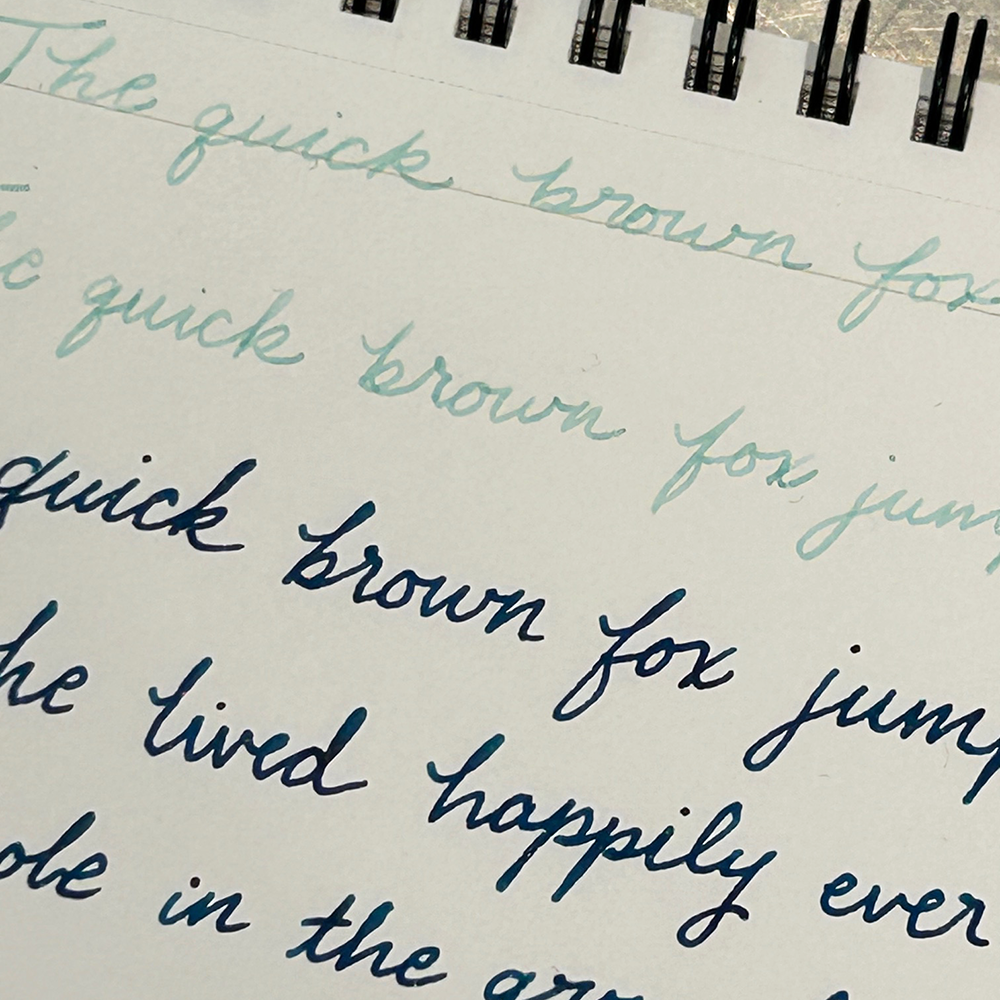 The quick brown fox
quick brown fox jum
quick brown fox jump
he lived happily ever
ole in the